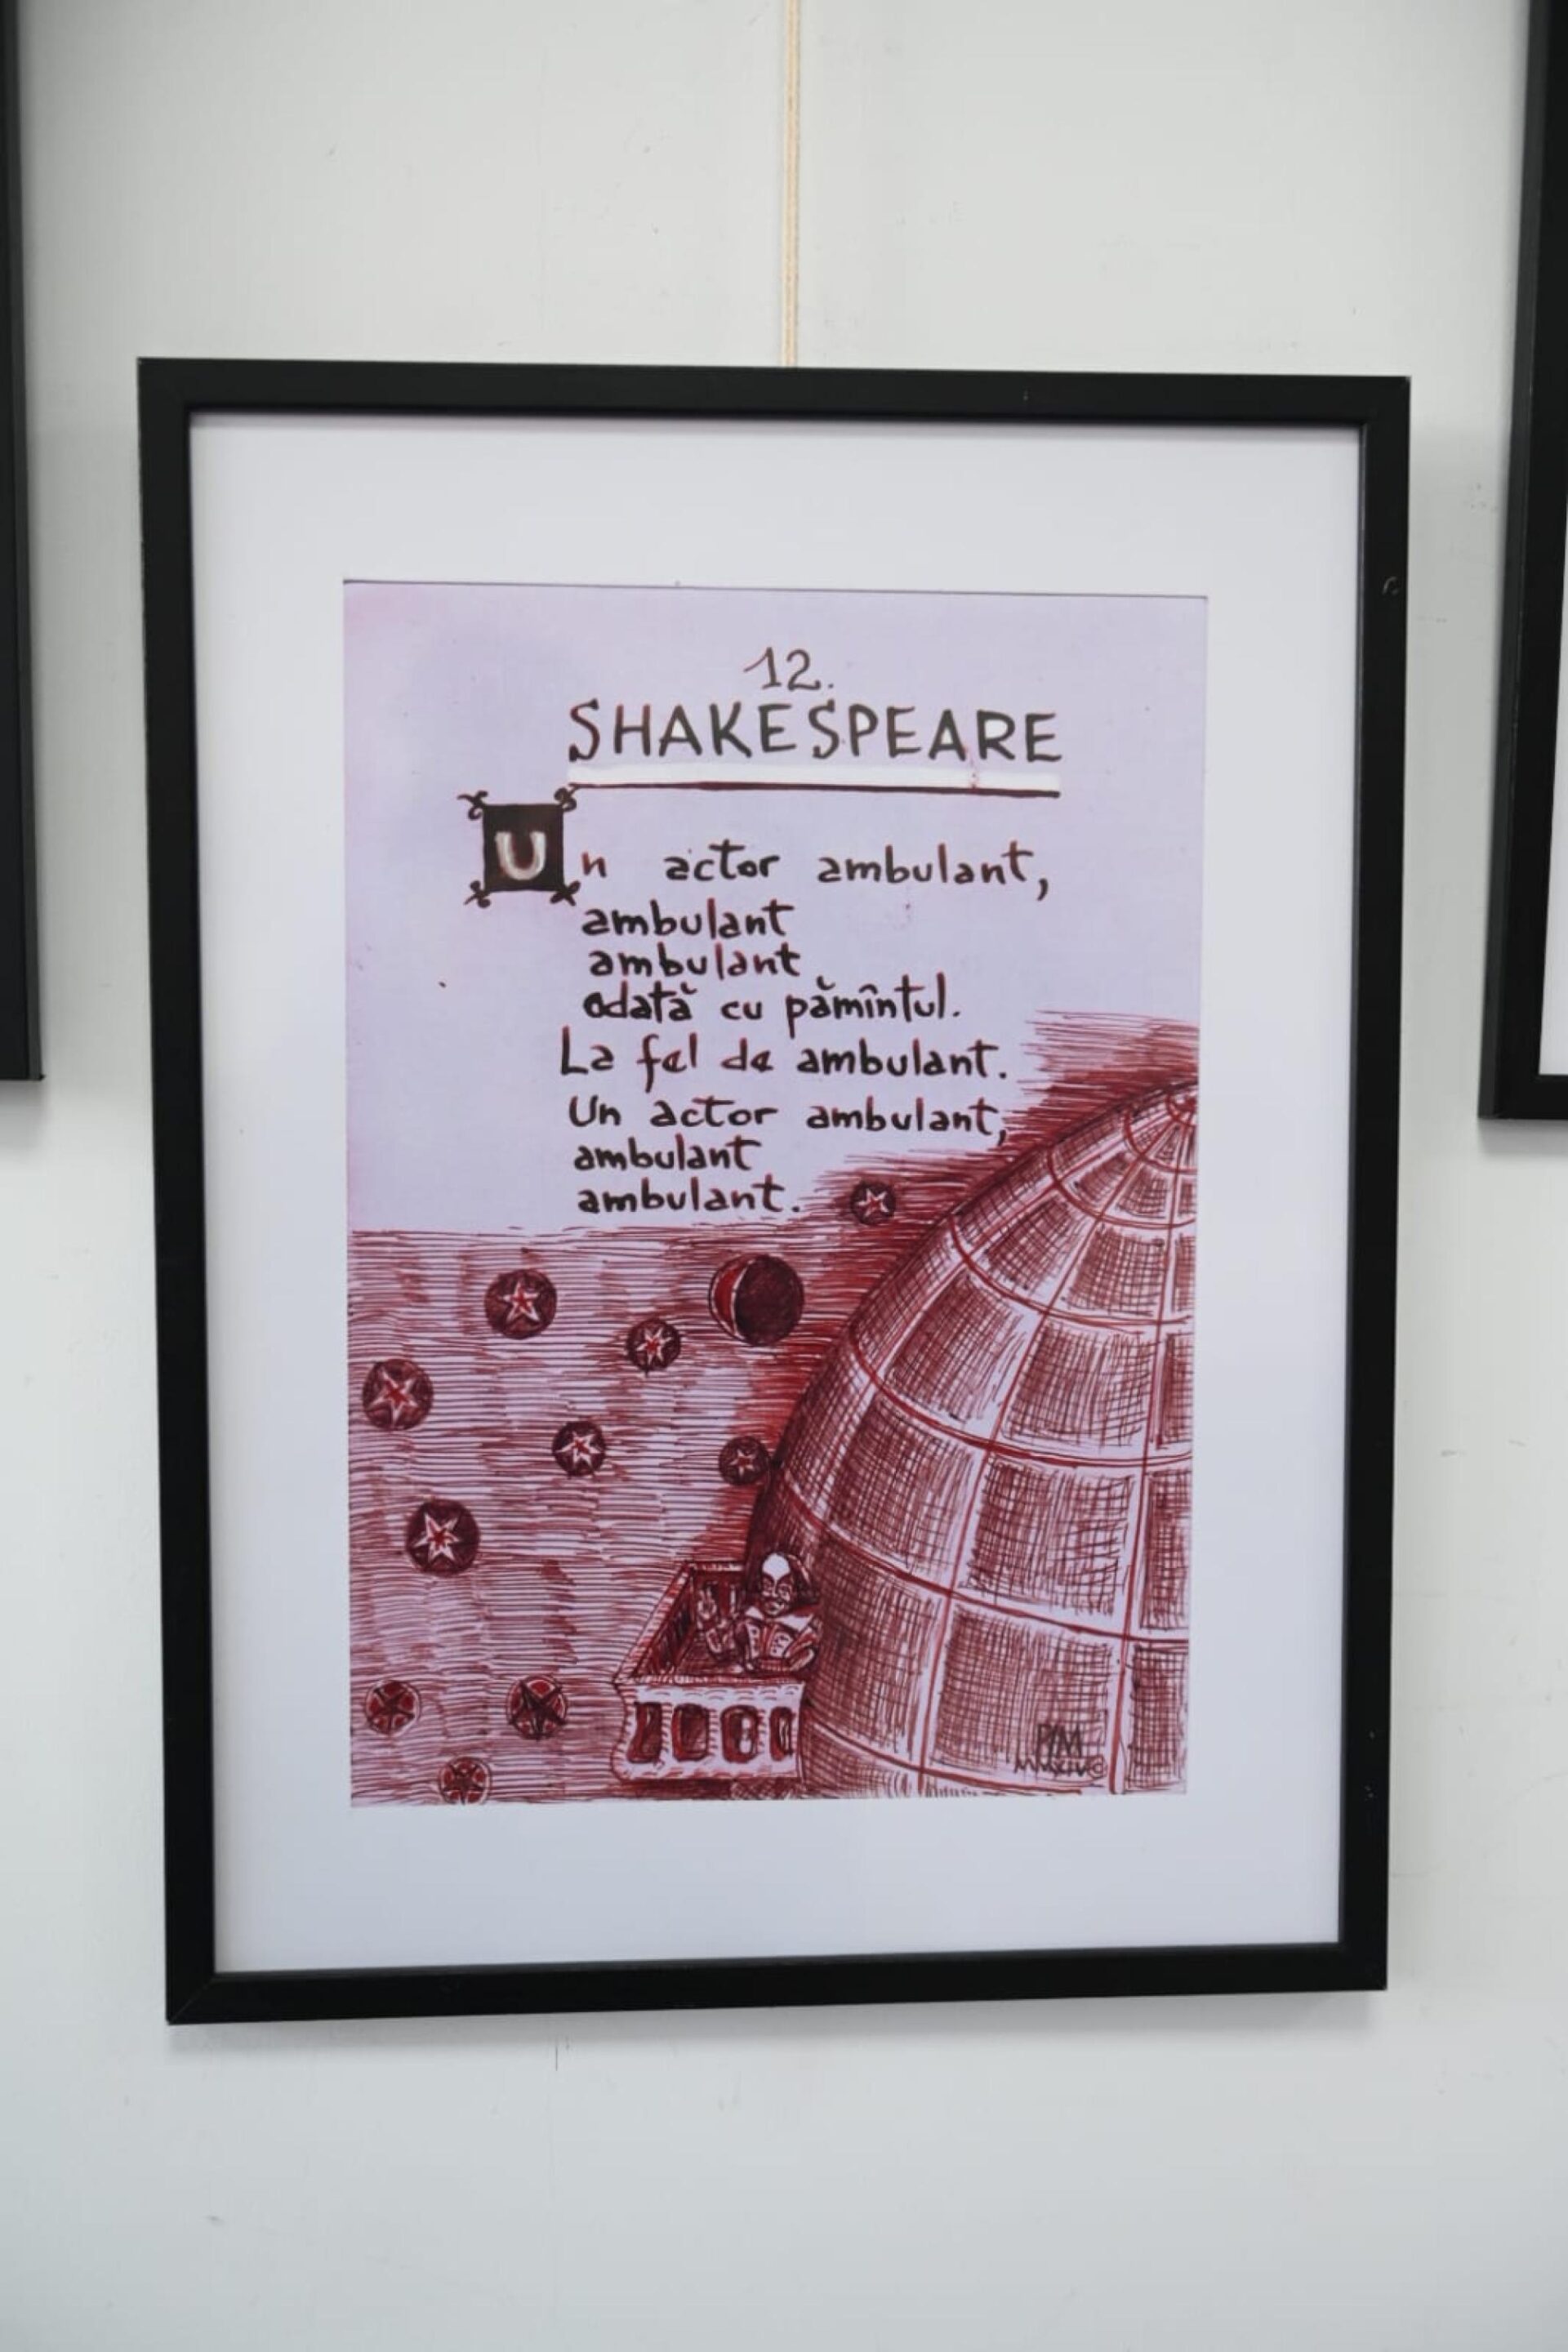 12.
SHAKESPEARE
Un actor ambulant,
ambulant
ambulant
odată cu pămîntul.
La fel de ambulant.
Un actor ambulant,
ambulant
ambulant.